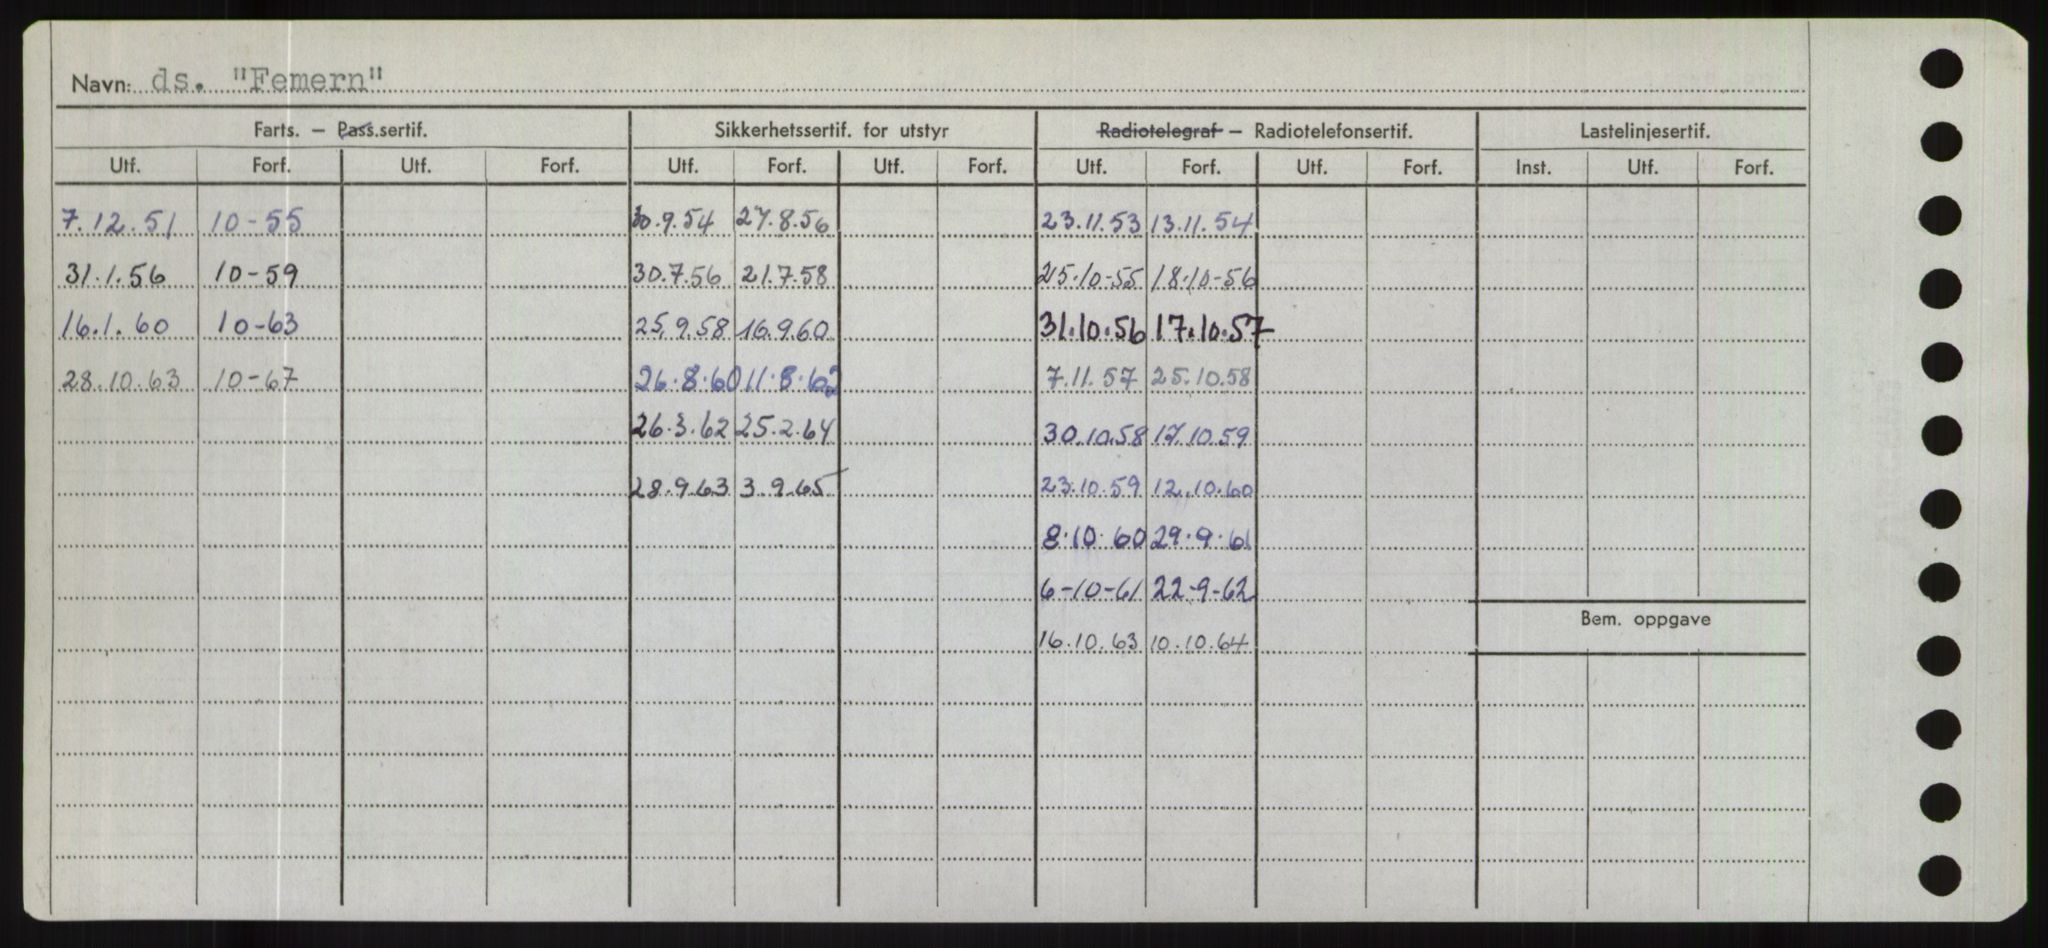 Navn: ds. "Femern"
Farts. – Pass.sertif. Sikkerhetssertif. for utstyr Radiotelegraf – Radiotelefonsertif. Lastelinjesertif.
Utf. Forf. Utf. Forf. Utf. Forf. Utf. Forf. Utf. Forf. Utf. Forf. Inst. Utf. Forf.
7.12.51 10-55 30.9.54 27.8.56 23.11.53 13.11.54
31.1.56 10-59 30.7.56 21.7.58 25.10-55 18.10-56
16.1.60 10-63 25.9.58 16.9.60 31.10.56 17.10.57
28.10.63 10-67 26.8.60 11.8.62 7.11.57 25.10.58
26.3.62 25.2.64 30.10.58 17.10.59
28.9.63 3.9.65 23.10.59 12.10.60
8.10.60 29.9.61
6-10-61 22-9-62
Bem. oppgave
16.10.63 10.10.64